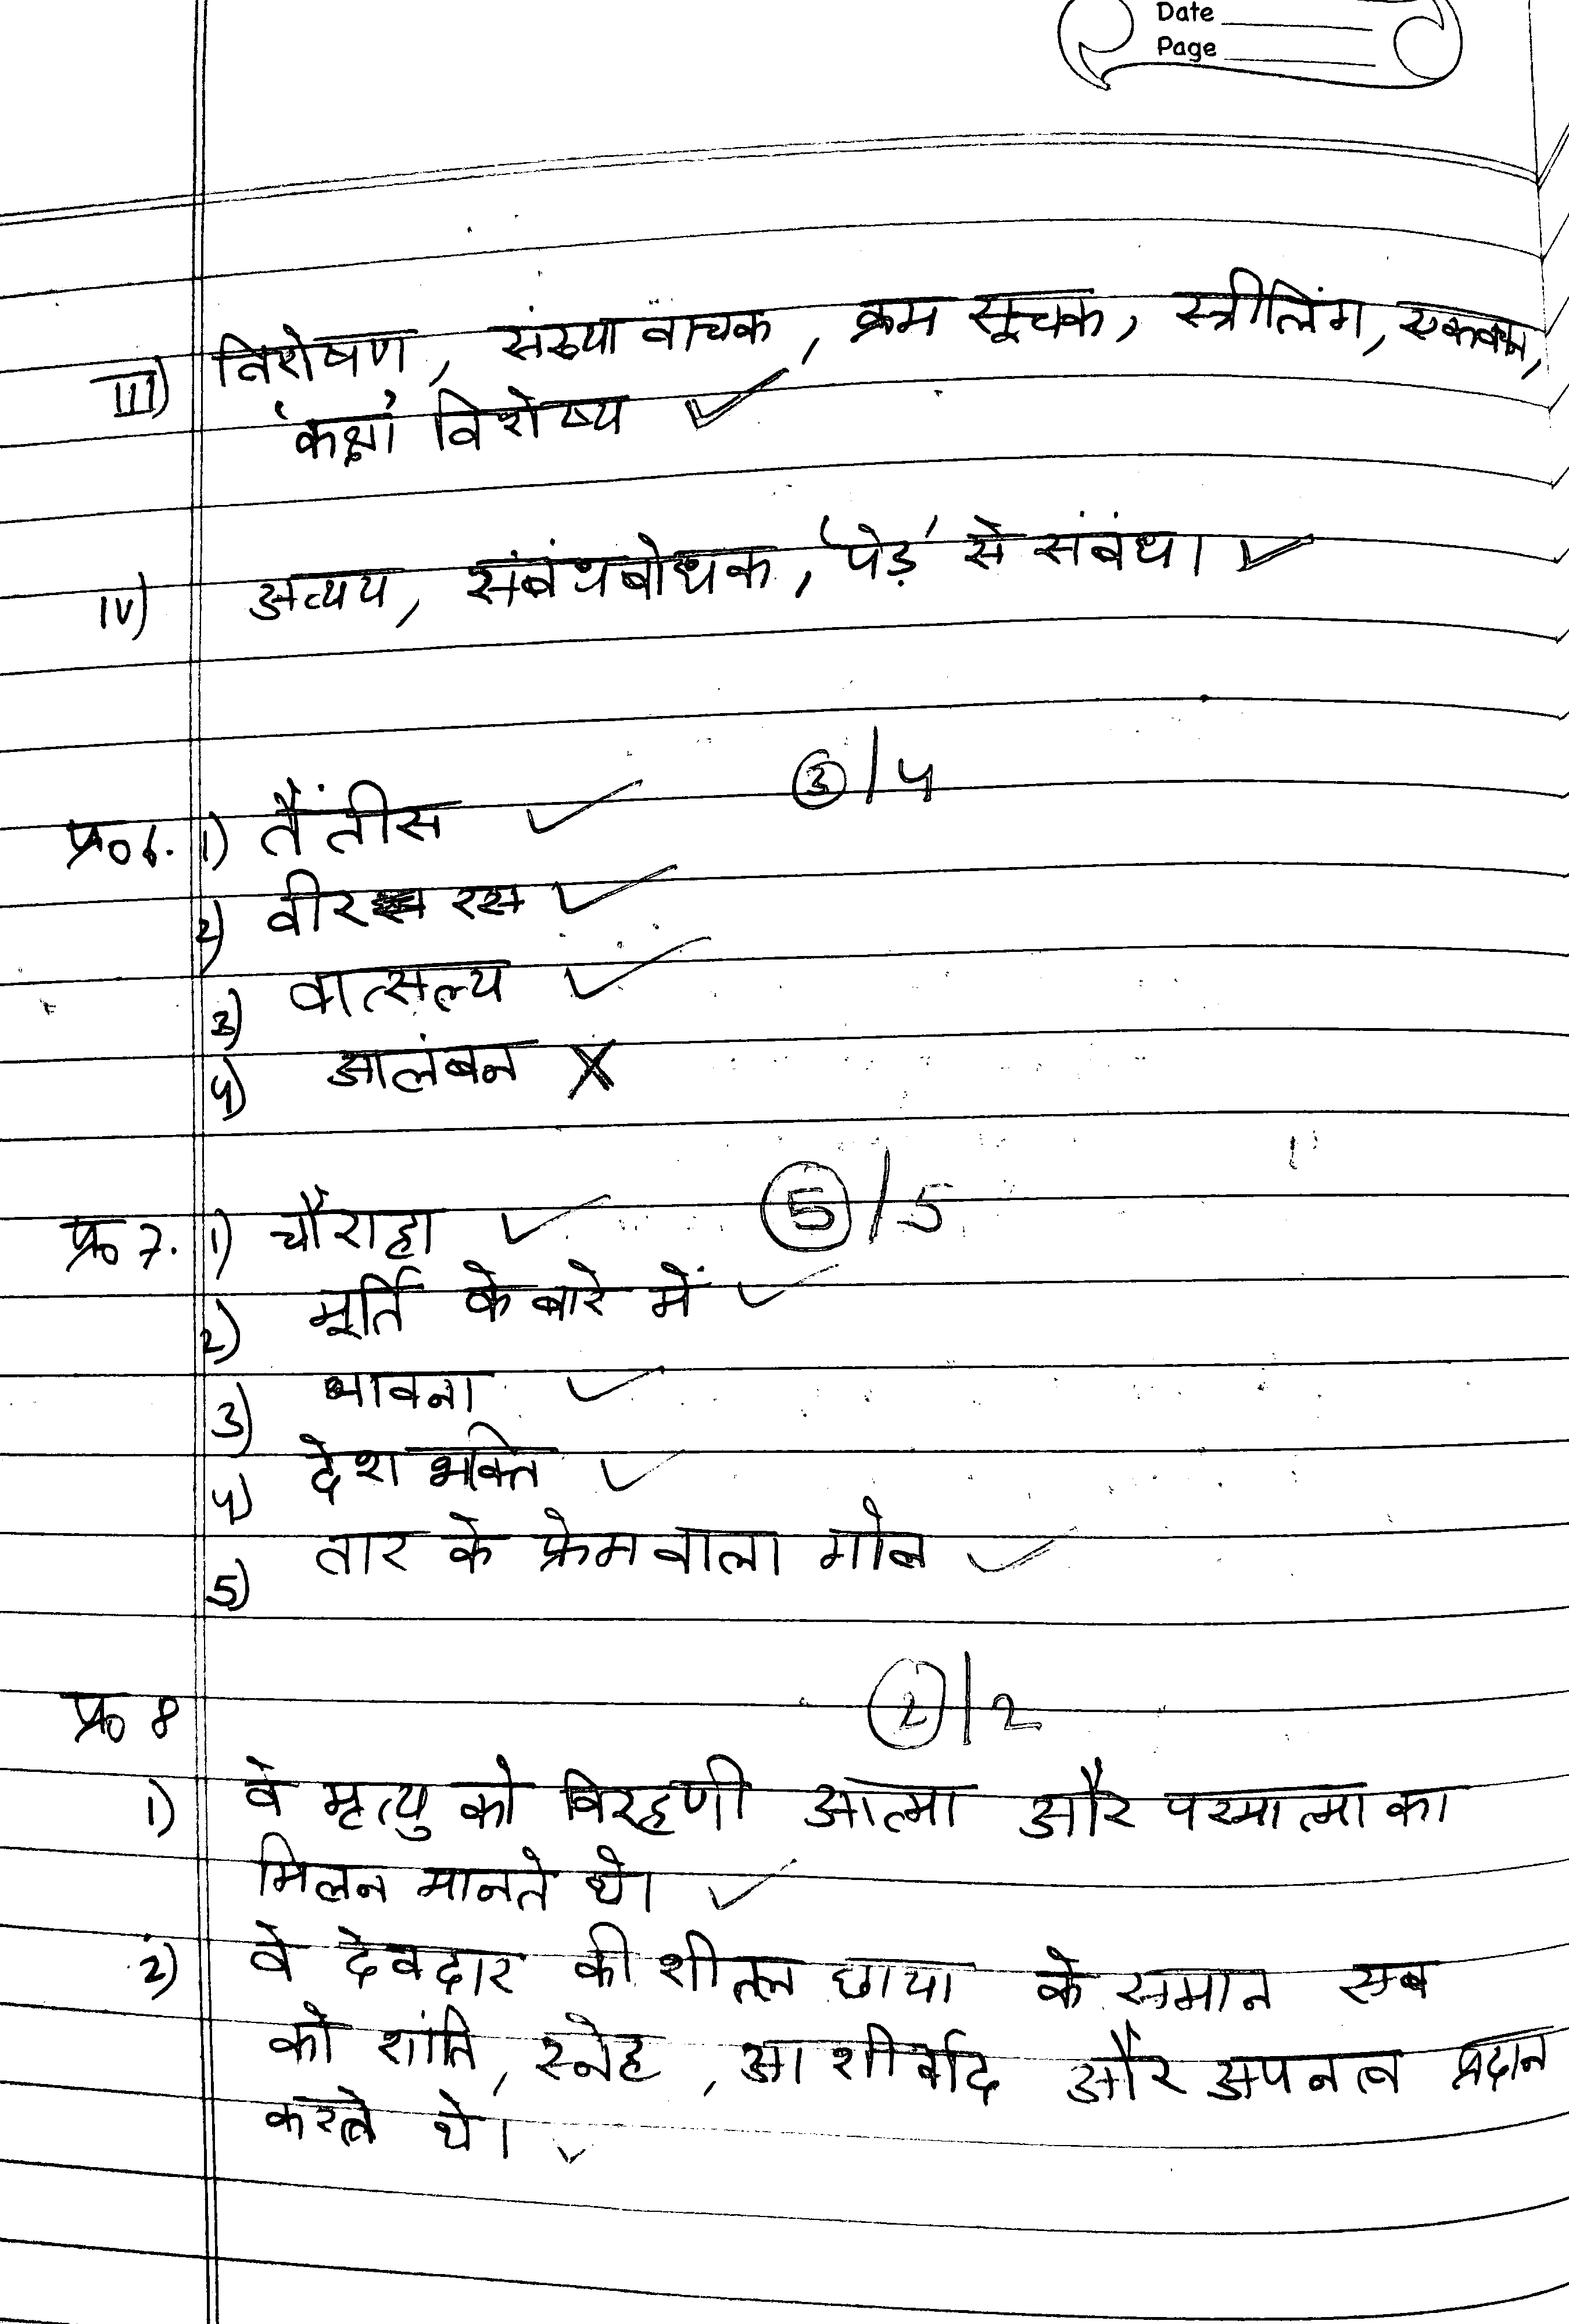 Date
Page
III) विशेषण, संख्या वाचक, क्रम सूचक, स्त्रीलिंग, एकवचन,
'कक्षा' विशेष्य ✓
IV) अव्यय, संबंधबोधक, 'पेड़' से संबंध। ✓
③/4
प्र०6. 1) तैंतीस ✓
2) वीर रस ✓
3) वात्सल्य ✓
4) आलंबन X
⑤/5
प्र० 7. 1) चौराहा ✓
2) मूर्ति के बारे में ✓
3) भावना ✓
4) देश भक्ति ✓
5) तार के फ्रेम वाला गोल ✓
②/2
प्र० 8
1) वे मृत्यु को विरहणी आत्मा और परमात्मा का
मिलन मानते थे। ✓
2) वे देवदार की शीतल छाया के समान सब
को शांति, स्नेह, आशीर्वाद और अपनत्व प्रदान
करते थे। ✓